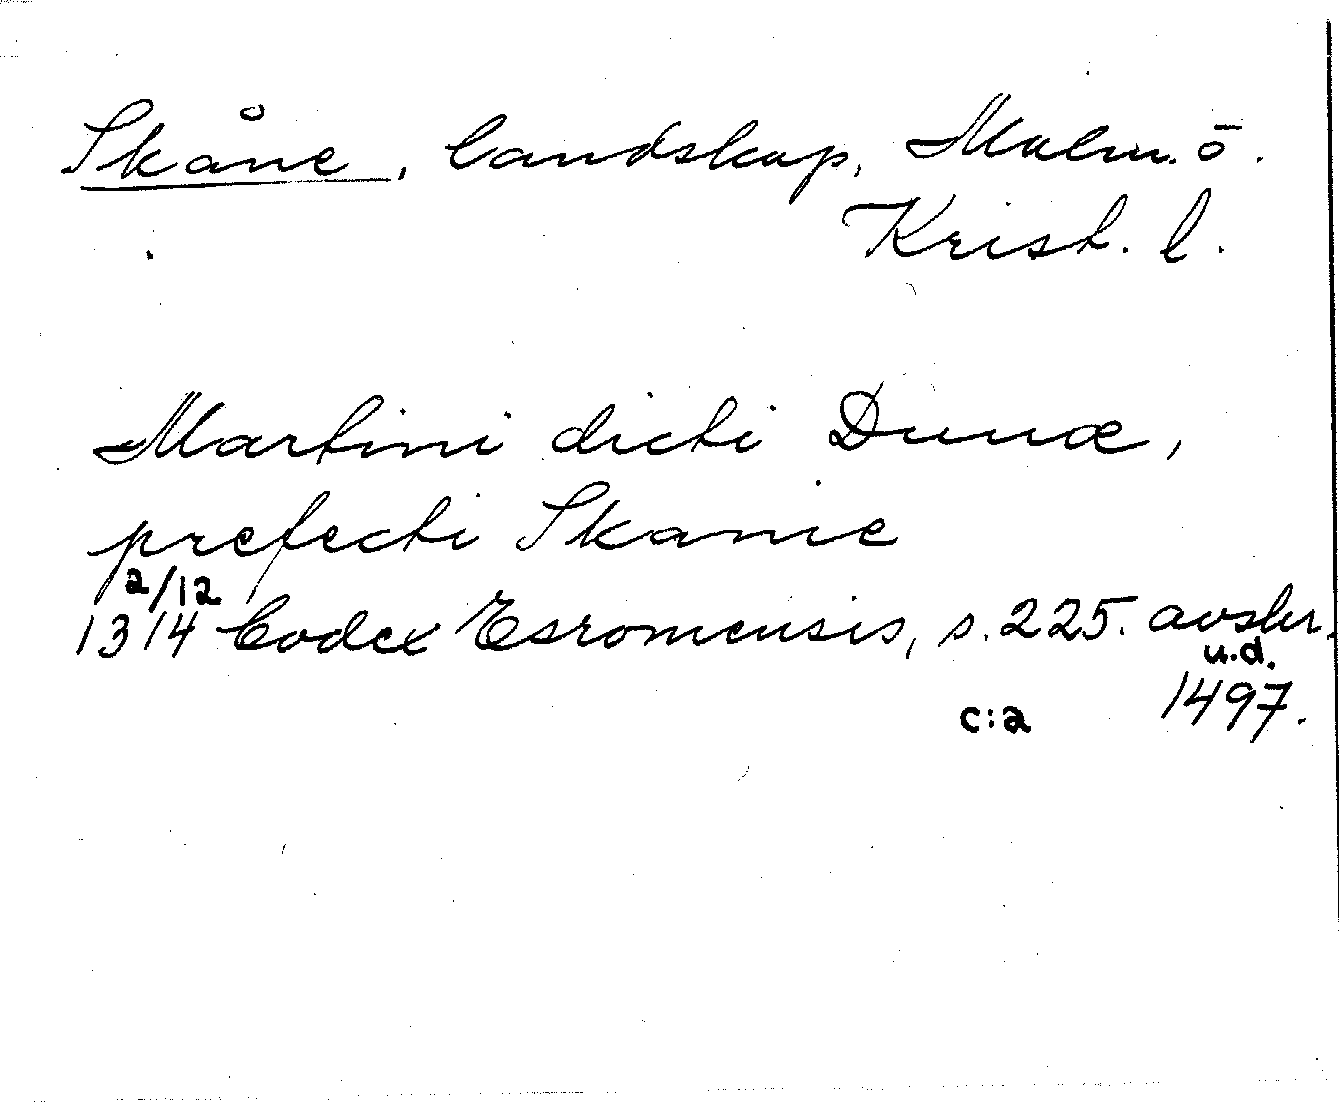 Skåne, landskap, Malm. ö.
Krist. l.
Martini dicti Dunæ,
prefecti Skanie
2/12
1314 Codex Esromensis, s. 225. avskr.
u.d.
c:a 1497.